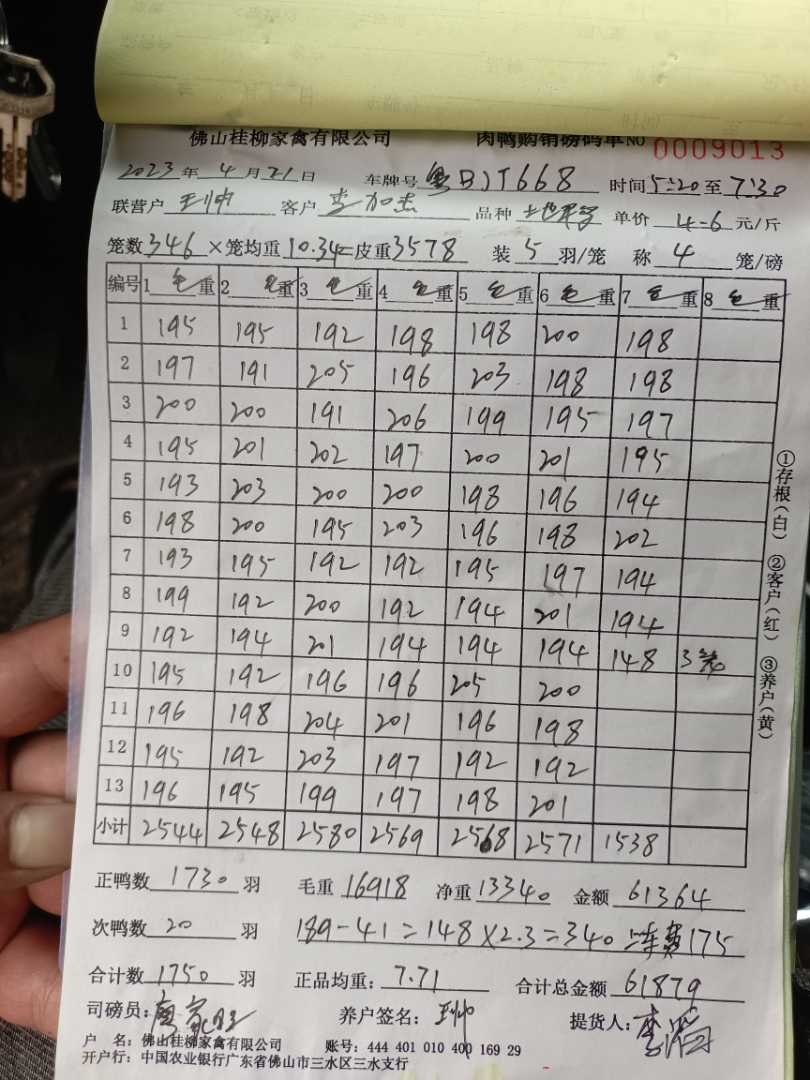 佛山桂柳家禽有限公司 肉鸭购销磅码单 NO 0009013
2023年4月21日 车牌号 粤BJT668 时间5:20至7:30
联营户 王帅 客户 李加杰 品种 单价 4.6 元/斤
笼数346×笼均重10.34=皮重3578 装 5 羽/笼 称 4 笼/磅
编号 1 毛重 2 毛重 3 毛重 4 毛重 5 毛重 6 毛重 7 毛重 8 毛重
1 195 195 192 198 198 200 198
2 197 191 205 196 203 198 198
3 200 200 191 206 199 195 197
4 195 201 202 197 200 201 195
5 193 203 200 200 198 196 194
6 198 200 195 203 196 198 202
7 193 195 192 192 195 197 194
8 199 192 200 192 194 201 194
9 192 194 201 194 194 194 148 3笼
10 195 192 196 196 205 200
11 196 198 204 201 196 198
12 195 192 203 197 192 192
13 196 195 199 197 198 201
小计 2544 2548 2580 2569 2568 2571 1538
①存根(白) ②客户(红) ③养户(黄)
正鸭数 1730 羽 毛重 16918 净重 13340 金额 61364
次鸭数 20 羽 189-41=148×2.3=340 车费175
合计数 1750 羽 正品均重: 7.71 合计总金额 61879
司磅员: 养户签名: 王帅 提货人: 李
户 名: 佛山桂柳家禽有限公司 账号: 444 401 010 400 169 29
开户行: 中国农业银行广东省佛山市三水区三水支行